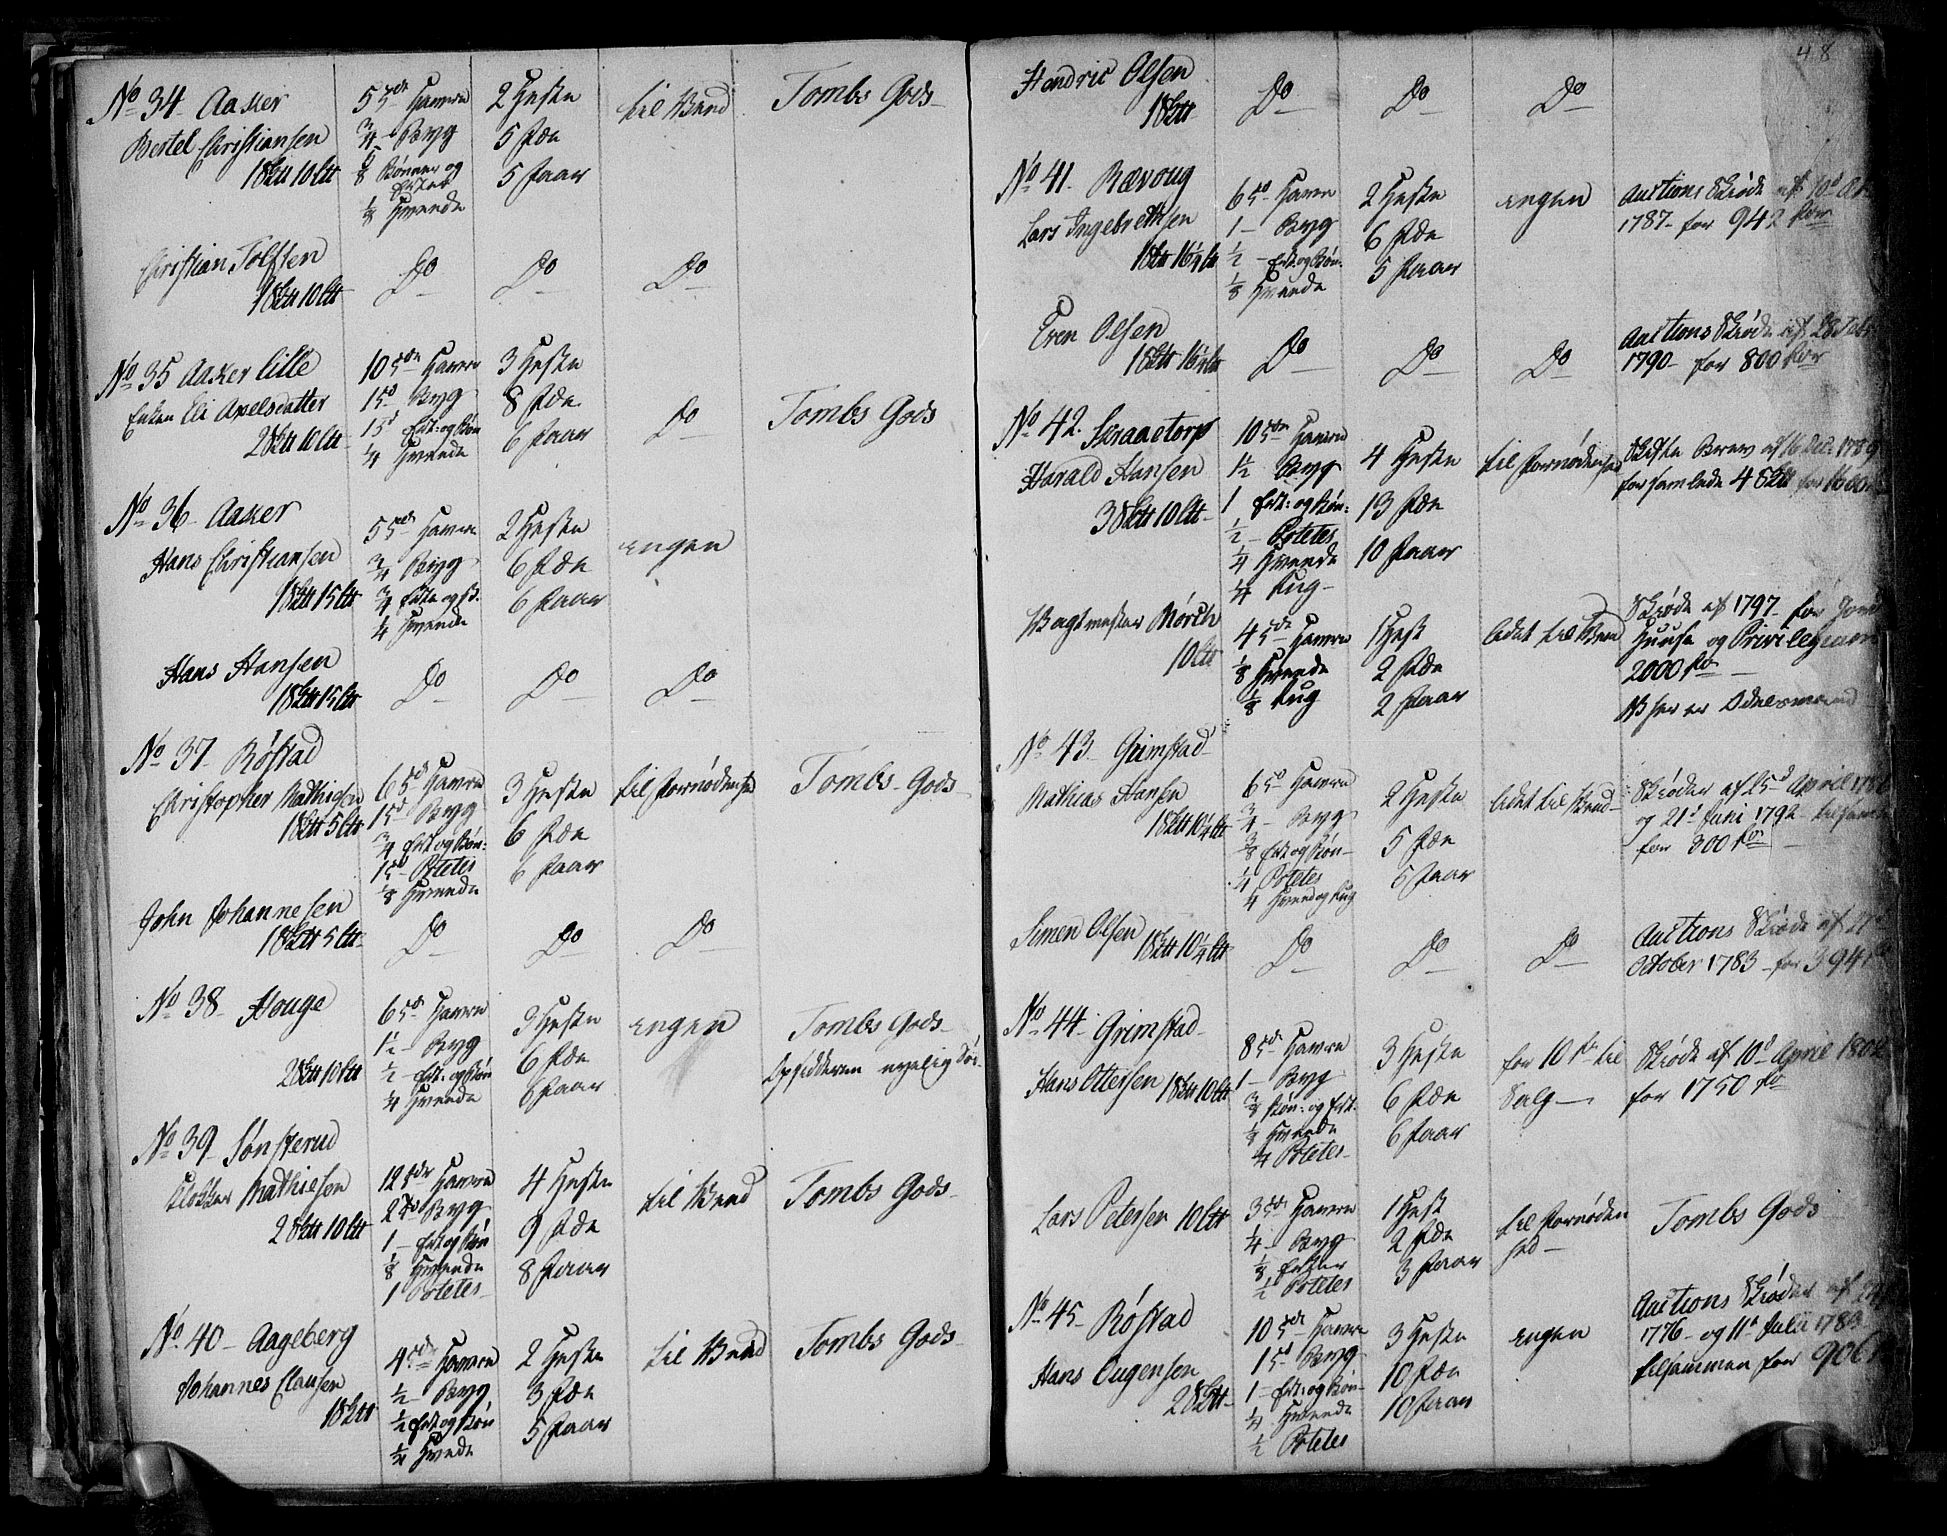 48
No 34 Aaker
Bertel Christiansen
1 Skt 10 ltt
5 Tdr Havre
3/4 - Byg
1/8 Bønner og
Erter
1/8 Hvede
2 Heste
5 Fæe
5 Faar
til Brænd
Tombs Gods
Christian Tolfsen
1 Skt 10 ltt
Do
Do
Do
No 35 Aaker lille
Enken Eli Axelsdatter
2 Skt 10 ltt
10 Tdr Havre
1 Td Byg
1 Td Ert: og Bøn
1/4 Hvede
3 Heste
8 Fæe
6 Faar
Do
Tombs Gods
No 36 Aaker
Hans Christiansen
1 Skt 15 ltt
5 Tdr Havre
3/4 Byg
3/4 Erter og B.
1/4 Hvede
2 Heste
6 Fæe
6 Faar
Ingen
Hans Hansen
1 Skt 15 ltt
Do
Do
Do
No 37 Røstad
Christopher Mathiesen
1 Skt 5 ltt
6 Td Havre
1 Td Byg
3/4 Ert og Bøn:
1 Td Potetes
1/8 Hvede
3 Heste
6 Fæe
6 Faar
til Fornødenhed
Tombs Gods
John Johannesen
1 Skt 5 ltt
Do
Do
Do
No 38 Houge
2 Skt 10 ltt
6 Tdr Havre
1 1/2 - Byg
1/2 - Ert: og Bøn
1/4 Hvede
3 Heste
6 Fæe
6 Faar
Ingen
Tombs Gods
Opsidderen nyelig Døe
No 39 Sønsterud
Klokker Mathiesen
2 Skt 10 ltt
12 Tdr Havre
2 Td Byg
1 - Ert og Bøn
1/8 Hvede
1 Potetes
4 Heste
9 Fæe
8 Faar
til Brænd
Tombs Gods
No 40 Aageberg
Johannes Clausen
1 Skt
4 Tdr Havre
1/2 - Byg
1/2 Ert og Bøn
1/4 Hvede
2 Heste
3 Fæe
5 Faar
til Brænd
Tombs Gods
Hendric Olsen
1 Skt
Do
Do
Do
No 41. Rævoug
Lars Ingebrethsen
1 Skt 16 1/4 ltt
6 Td Havre
1 - Byg
1/2 - Ert: og Bøn:
1/8 Hvede
2 Heste
6 Fæe
5 Faar
Ingen
Auctions Skiøde af 10d
1787 - for 942 Rdr
Even Olsen
1 Skt 16 1/4 ltt
Do
Do
Do
Auctions Skiøde af 28 Feb
1790 - for 800 Rdr
No 42. Skraaetorp
Harald Hansen
3 Skt 10 ltt
10 Tdr Havre
1 1/2 Byg
1 Ert: og Bøn:
1/2 - Potetes
1/4 Hvede
1/4 Rug
4 Heste
13 Fæe
10 Faar
til Fornødenhed
Skifte Brev af 16 Dec: 1789
for samlede 4 Skt for 1600
Vagtmester Mørch
10 ltt
4 Tdr Havre
1/8 Hvede
1/8 Rug
1 Hest
2 Fæe
2 Faar
lidet til Bræn
Skiøde af 1797 - for Jord
Huuse og Privilegium
2000 Rdr
NB her er Odelsmænd
No 43 Grimstad
Mathias Hansen
1 Skt 10 1/4 ltt
6 Td Havre
3/4 - Byg
3/8 Ert og Bøn
1/4 Potetes
1/4 Hvede og Rug
2 Heste
5 Fæe
5 Faar
lidet til Brænd
Skiøder af 25d April 178
og 21d Juni 1792 tilsamm
for 300 Rdr
Simen Olsen
1 Skt 10 1/4 ltt
Do
Do
Do
Auctions Skiøde af 27d
October 1783 - for 394 Rdr
No 44 Grimstad
Hans Ottersen 1 Skt 10 ltt
8 Tdr Havre
1 - Byg
3/4 Bøn: og Ert:
1/4 Hvede
1/4 Potetes
3 Heste
6 Fæe
6 Faar
for 10 Rdr til
Salg
Skiøde af 10d April 1802
for 1750 Rdr
Lars Petersen 10 ltt
3 Tdr Havre
1/4 - Byg
1/8 Erter
1/2 Potetes
1 Hest
2 Fæe
3 Faar
til Fornøden
hed
Tombs Gods
No 45 Røstad
Hans Ougensen
2 Skt
10 Tdr Havre
1 Td Byg
1 - Ert: og Bøn
1/4 Hvede
1/2 Potetes
3 Heste
10 Fæe
10 Faar
Ingen
Auctions Skiøder af
1776 - og 11d Julii 1783
tilsammen for 906